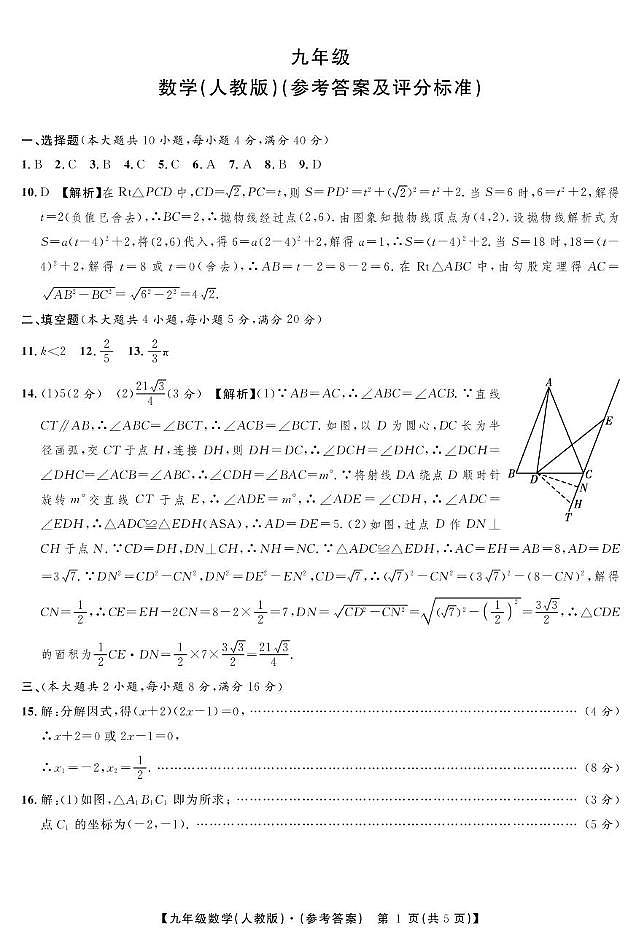 九年级
数学(人教版)(参考答案及评分标准)
一、选择题(本大题共10小题,每小题4分,满分40分)
1.B 2.C 3.B 4.C 5.C 6.A 7.A 8.B 9.D
10.D 【解析】在Rt△PCD中,CD=√2,PC=t,则S=PD²=t²+(√2)²=t²+2.当S=6时,6=t²+2,解得
t=2(负值已舍去),∴BC=2,∴抛物线经过点(2,6).由图象知抛物线顶点为(4,2).设抛物线解析式为
S=a(t-4)²+2,将(2,6)代入,得6=a(2-4)²+2,解得a=1,∴S=(t-4)²+2.当S=18时,18=(t-
4)²+2,解得t=8或t=0(舍去),∴AB=t-2=8-2=6.在Rt△ABC中,由勾股定理得AC=
√(AB²-BC²)=√(6²-2²)=4√2.
二、填空题(本大题共4小题,每小题5分,满分20分)
11.k<2 12.2/5 13.2/3π
14.(1)5(2分) (2)21√3/4(3分) 【解析】(1)∵AB=AC,∴∠ABC=∠ACB.∵直线
CT∥AB,∴∠ABC=∠BCT,∴∠ACB=∠BCT.如图,以D为圆心,DC长为半
径画弧,交CT于点H,连接DH,则DH=DC,∴∠DCH=∠DHC,∴∠DCH=
∠DHC=∠ACB=∠ABC,∴∠CDH=∠BAC=m°.∵将射线DA绕点D顺时针
旋转m°交直线CT于点E,∴∠ADE=m°,∴∠ADE=∠CDH,∴∠ADC=
∠EDH,∴△ADC≌△EDH(ASA),∴AD=DE=5.(2)如图,过点D作DN⊥
CH于点N.∵CD=DH,DN⊥CH,∴NH=NC.∵△ADC≌△EDH,∴AC=EH=AB=8,AD=DE
=3√7.∵DN²=CD²-CN²,DN²=DE²-EN²,CD=√7,∴(√7)²-CN²=(3√7)²-(8-CN)²,解得
CN=1/2,∴CE=EH-2CN=8-2×1/2=7,DN=√(CD²-CN²)=√((√7)²-(1/2)²)=3√3/2,∴△CDE
的面积为1/2CE·DN=1/2×7×3√3/2=21√3/4.
A
E
B
D
C
N
H
T
三、(本大题共2小题,每小题8分,满分16分)
15.解:分解因式,得(x+2)(2x-1)=0,……(4分)
∴x+2=0或2x-1=0,
∴x₁=-2,x₂=1/2.……(8分)
16.解:(1)如图,△A₁B₁C₁即为所求;……(3分)
点C₁的坐标为(-2,-1).……(5分)
【九年级数学(人教版)·(参考答案) 第1页(共5页)】